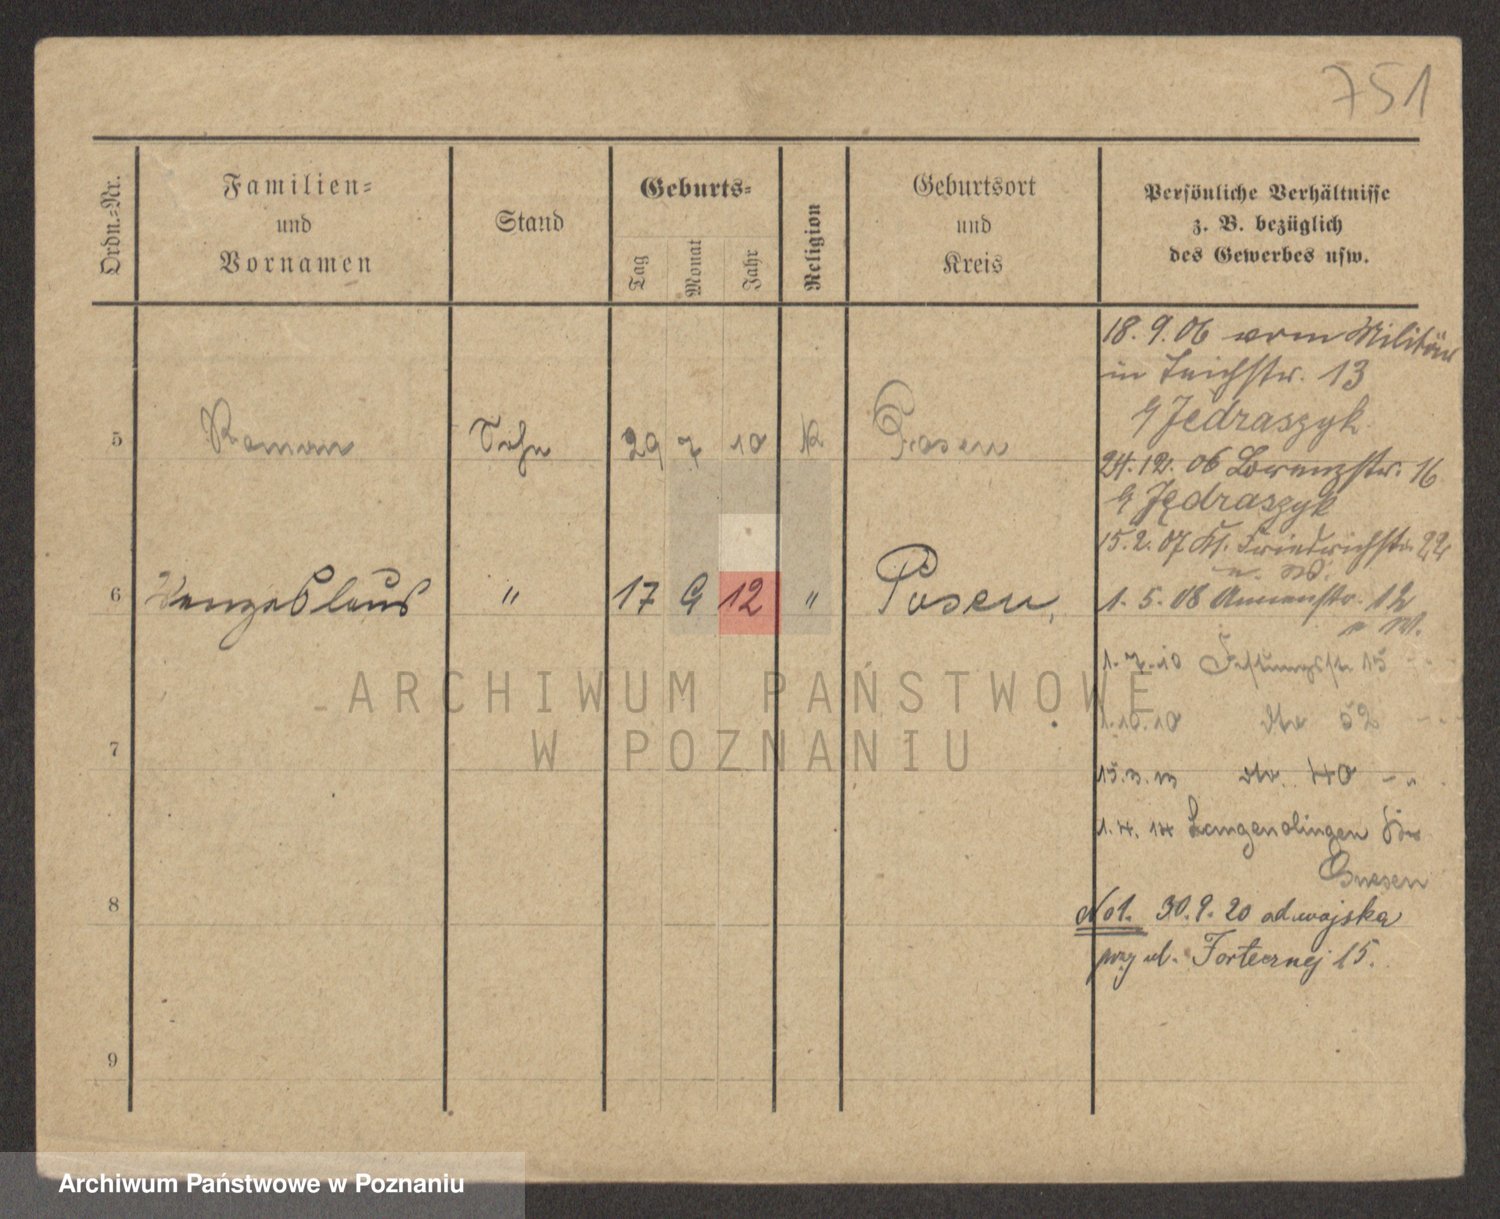 751
Ordn.-Nr.
Familien-
und
Vornamen
Stand
Geburts-
Tag
Monat
Jahr
Religion
Geburtsort
und
Kreis
Persönliche Verhältnisse
z. B. bezüglich
des Gewerbes usw.
18. 9. 06 vom Militär
in Teichstr. 13
b/ Jedraszyk
5 Roman Sohn 29 7 10 K Posen
24. 12. 06 Lorenzstr. 16
b/ Jędraszyk
15. 2. 07 Kl. Friedrichstr. 22
u. W.
6 Wenzeslaus " 17 9 12 " Posen,
1. 5. 08 Annenstr. 12
u W.
1. 7. 10 Festungsstr. 15 - "
1. 10. 10 dto 52 - "
7
15. 3. 13 dto. 40 - "
1. 4. 14 Langenolingen Kr
Gnesen
8
Not. 30. 9. 20 od wojska
przy ul. Fortecznej 15.
9
ARCHIWUM PAŃSTWOWE
W POZNANIU
Archiwum Państwowe w Poznaniu